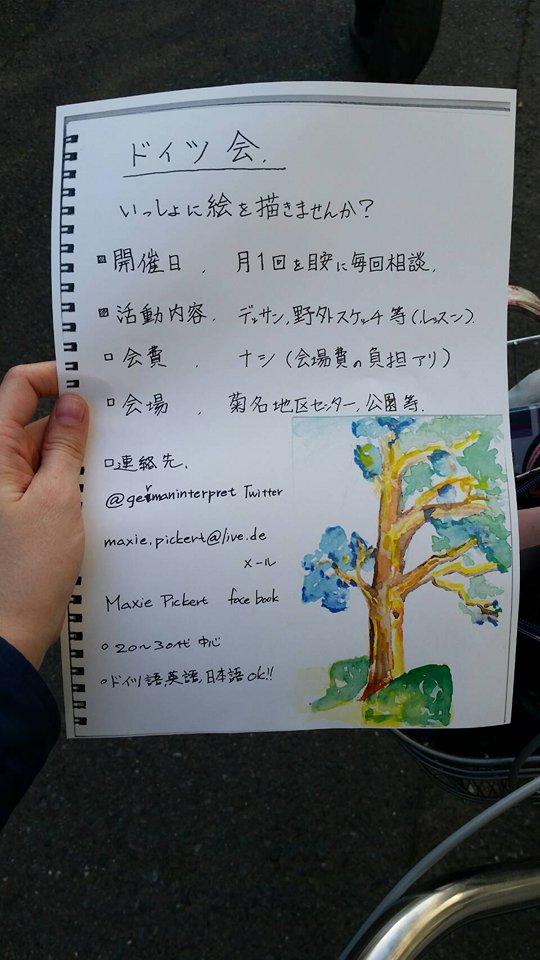 ドイツ会.
いっしょに絵を描きませんか?
開催日 . 月1回を目安に毎回相談.
活動内容. デッサン,野外スケッチ等(レッスン).
□会費 . ナシ(会場費の負担アリ)
□会場 . 菊名地区センター,公園等.
□連絡先.
@germaninterpret Twitter
maxie.pickert@live.de
メール
Maxie Pickert facebook
○20~30代 中心
○ドイツ語,英語,日本語ok!!